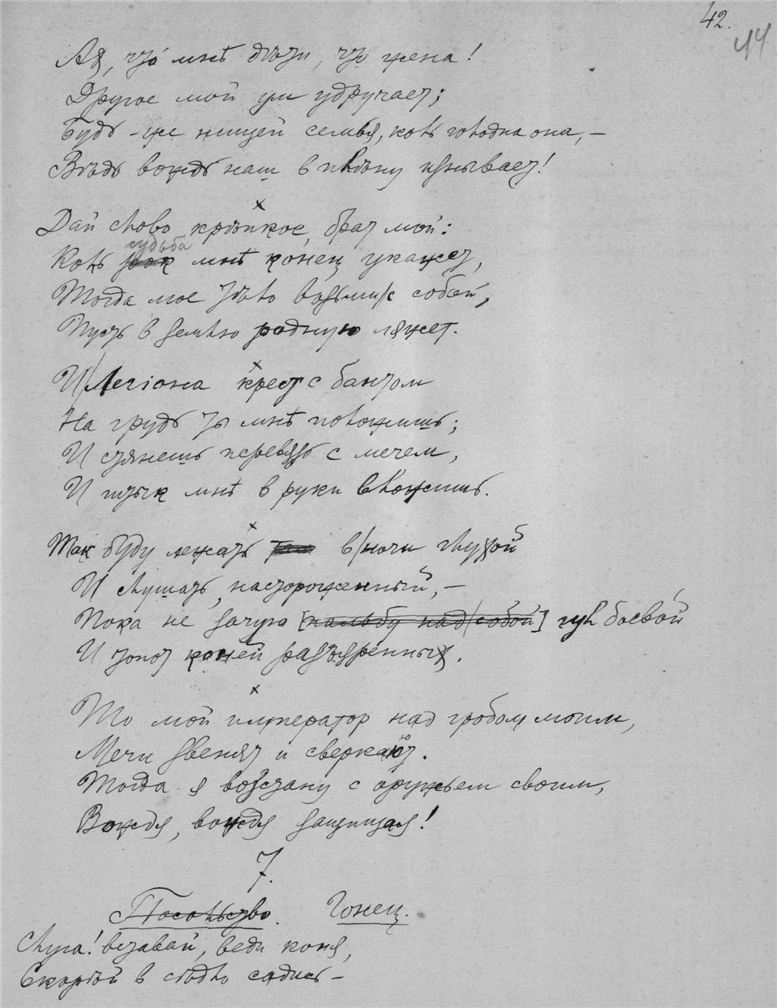 42.
44
Ая, что мнѣ дѣти, что жена!
Другое мой ум удручает;
Будь-же нищей семья, коль голодна она, –
Вѣдь вождь наш в плѣну изнывает!
Дай слово крѣпкое, брат мой:
судьба
Коль рок мнѣ конец укажет,
Тогда мое тѣло возьми с собой,
Пусть в землю родную ляжет.
И Легіона крест с бантом
На грудь ты мнѣ положишь;
И стянешь перевязь с мечем,
И штык мнѣ в руки вложишь.
Так буду лежать в ночи глухой
И слушать, настороженный, –
Пока не зачую [пальбу над собой] гул боевой
И топот коней разъяренных.
То мой император над гробом моим,
Мечи звенят и сверкают.
Тогда я возстану с оружьем своим,
Вождя, вождя защищая!
7.
Посольство. Гонец.
Слуга! вставай, веди коня,
Скорѣй в сѣдло садись –